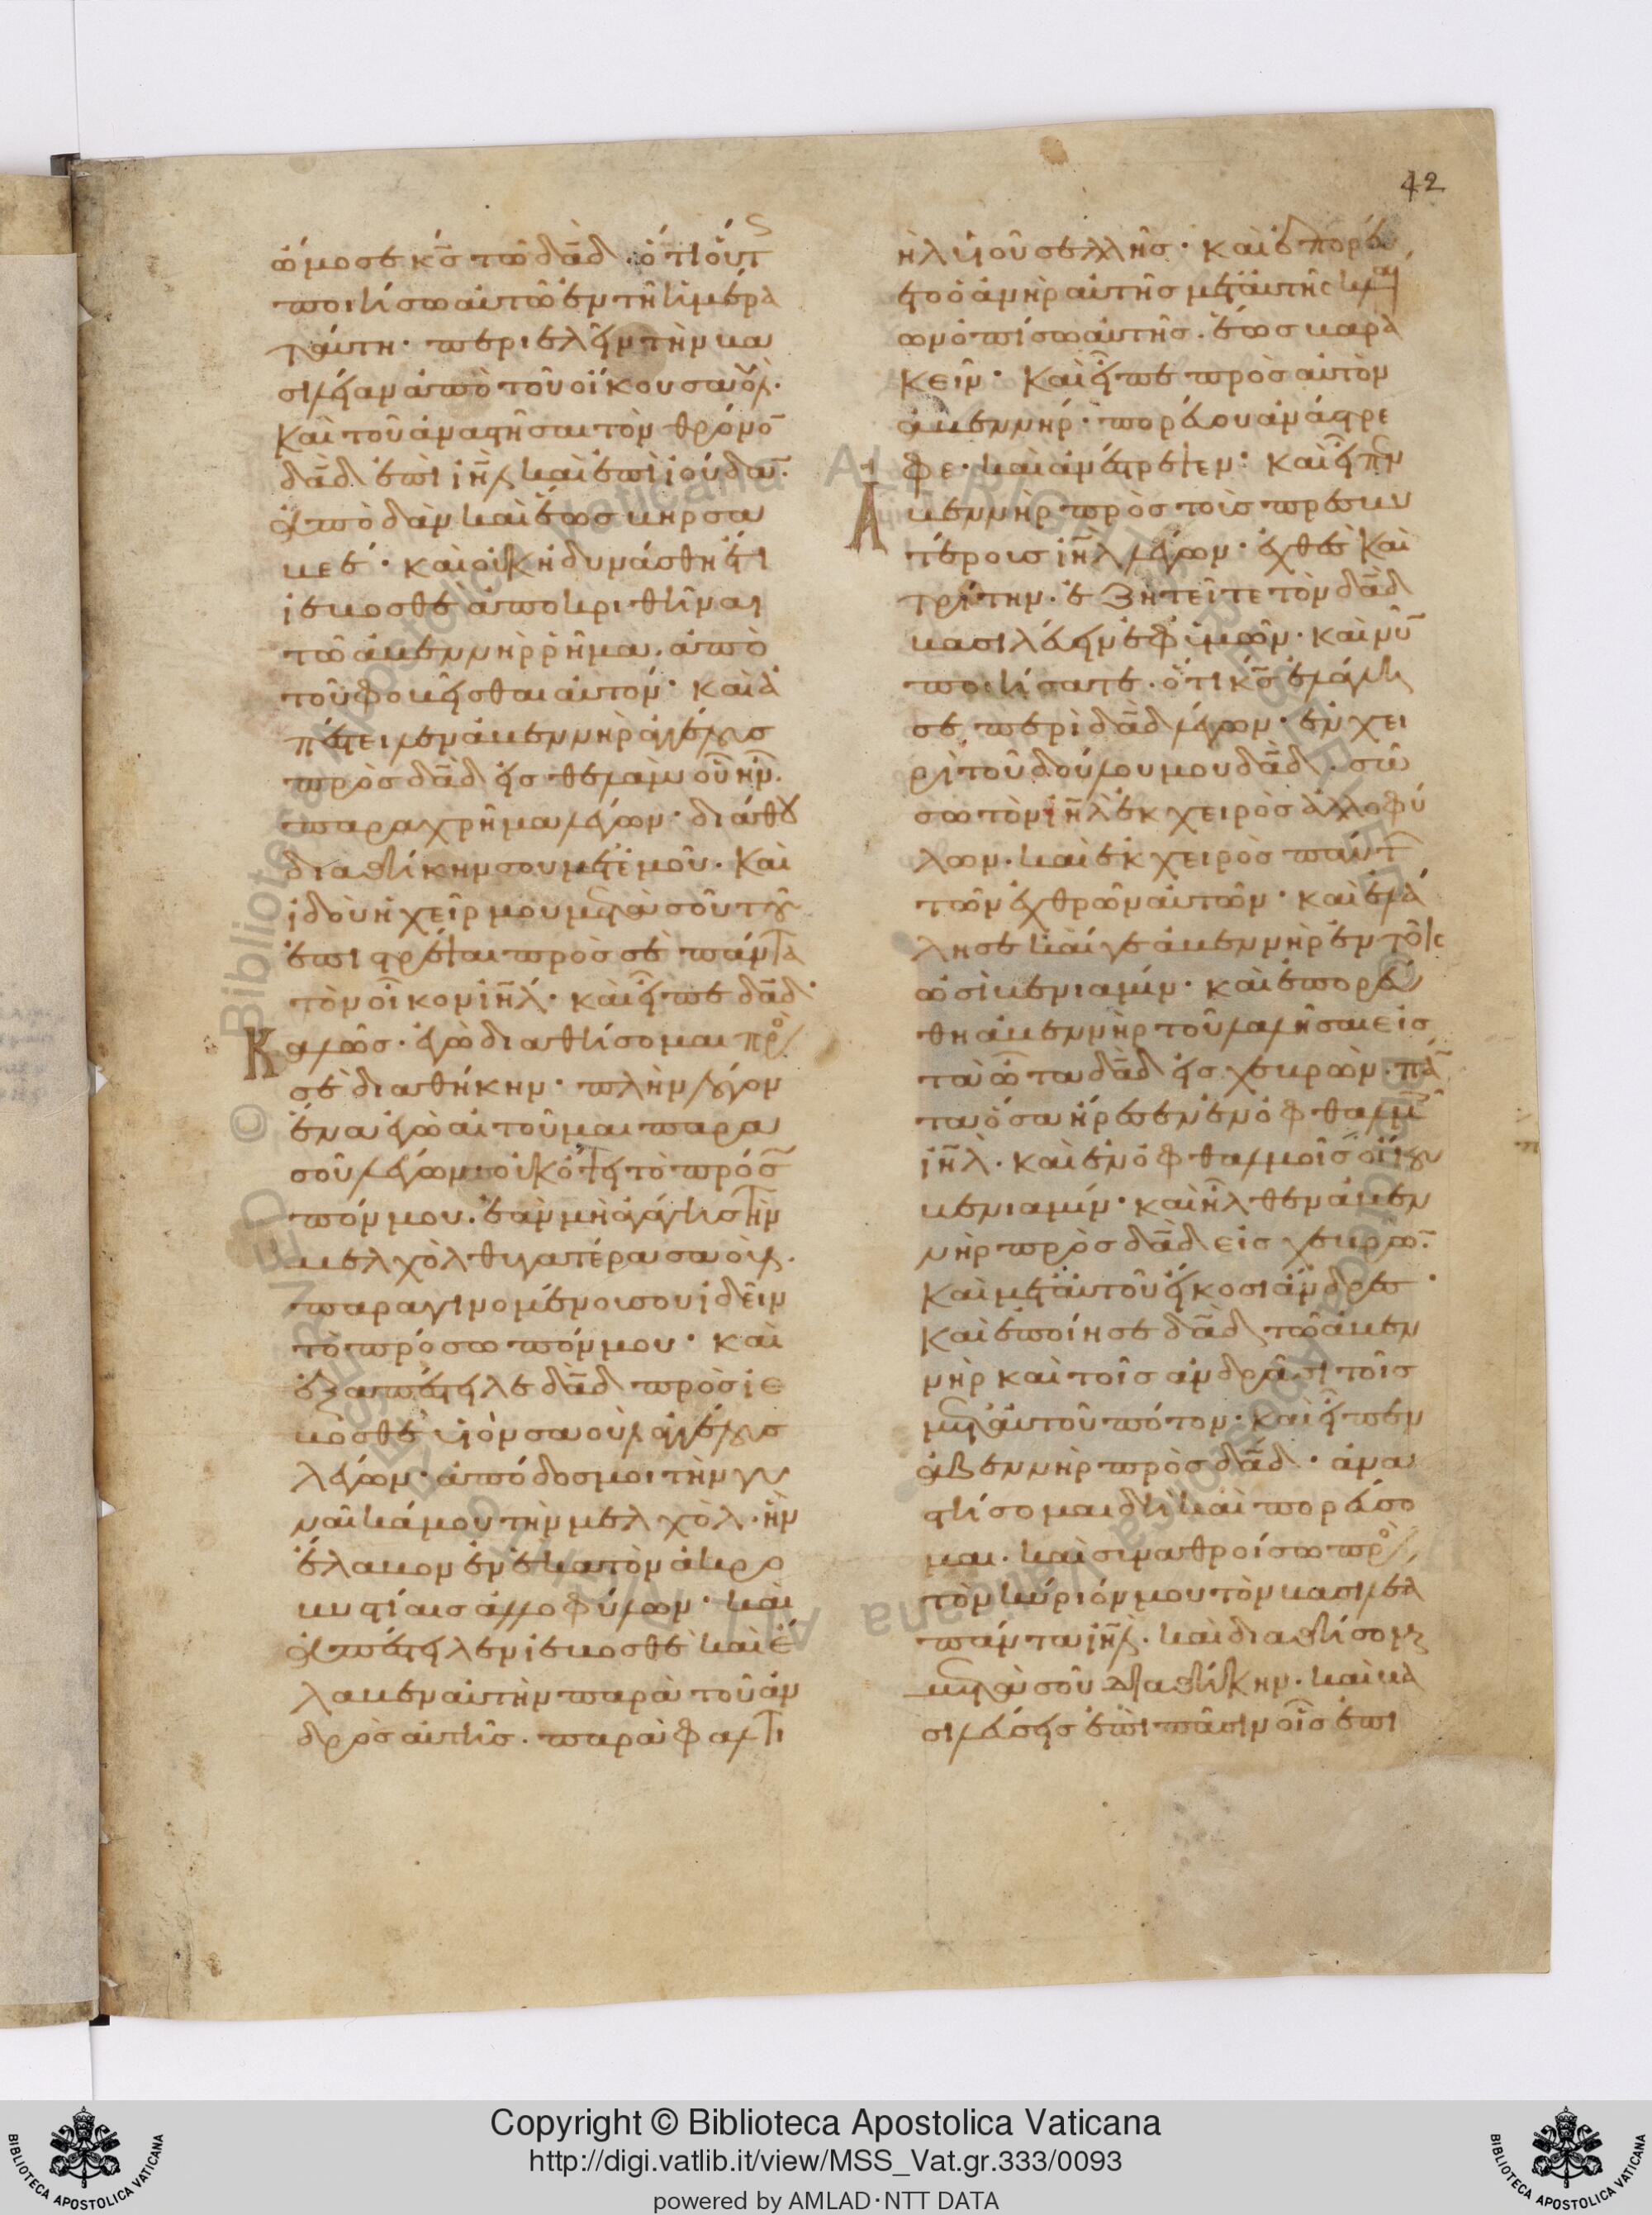 42
ὤμοσε κ̅ς̅ τῶ δα̅δ̅· ὅτι οὕτως
ποιήσω αὐτῶ ἐν τῆ ἡμέρα
ταύτη· περιελεῖν τὴν βα
σιλείαν ἀπὸ τοῦ οἴκου σαούλ·
Καὶ τοῦ ἀναστῆσαι τὸν θρόνο̅
δα̅δ̅ ἐπὶ ι̅η̅λ̅ καὶ ἐπὶ ἰούδα̅·
ἀπὸ δὰν καὶ ἕως βηρσα
βεέ· καὶ οὐκ ἠδυνάσθη ἔτι
ἰεβοσθὲ ἀποκριθῆναι
τῶ ἀβεννὴρ ῥῆμα. ἀπὸ
τοῦ φοβεῖσθαι αὐτόν· καὶ ἀ
πέστειλεν ἀβεννὴρ ἀγγέλους
πρὸς δα̅δ̅ εἰς θελὰμ οὗ ἦν.
παραχρῆμα λέγων· διάθου
διαθήκην σου μετ' ἐμοῦ· Καὶ
ἰδοὺ ἡ χείρ μου μετὰ σοῦ τοῦ
ἐπιστρέψαι πρὸς σὲ πάντα
τὸν οἶκον ι̅η̅λ̅· καὶ εἶπε δα̅δ̅·
Καλῶς· ἐγὼ διαθήσομαι πρὸς
σὲ διαθήκην· πλὴν λόγον
ἕνα ἐγὼ αἰτοῦμαι παρὰ
σοῦ λέγων· οὐκ ὄψει τὸ πρόσω
πόν μου. ἐὰν μὴ ἀγάγης τὴν
μελχὸλ θυγατέρα σαούλ.
παραγινομένοις σου ἰδεῖν
τὸ πρόσωπόν μου· καὶ
ἐξαπέστειλε δα̅δ̅ πρὸς ἰε
βοσθὲ υἱὸν σαοὺλ ἀγγέλους
λέγων· ἀπόδος μοι τὴν γυ
ναῖκά μου τὴν μελχὸλ. ἣν
ἔλαβον ἐν ἑκατὸν ἀκρο
βυστίαις ἀλλοφύλων· καὶ
ἀπέστειλεν ἰεβοσθὲ καὶ ἔ
λαβεν αὐτὴν παρὰ τοῦ ἀν
δρὸς αὐτῆς. παρὰ φαλτι
ὴλ υἱοῦ σελλῆς· καὶ ἐπορεύ
ετο ὁ ἀνὴρ αὐτῆς μετ' αὐτῆς κλαί
ων ὀπίσω αὐτῆς. ἕως βαρα
κεῖμ· Καὶ εἶπε πρὸς αὐτὸν
ἀβεννήρ· πορεύου ἀνάστρε
φε· καὶ ἀνέστρεψεν· Καὶ εἶπεν
Ἀβεννὴρ πρὸς τοὺς πρεσβυ
τέρους ι̅η̅λ̅ λέγων· ἐχθὲς καὶ
τρίτην· ἐζητεῖτε τὸν δα̅δ̅
βασιλεύειν ἐφ' ὑμῶν· καὶ νῦ̅
ποιήσατε· ὅτι κ̅ς̅ ἐλάλη
σε περὶ δα̅δ̅ λέγων· ἐν χει
ρὶ τοῦ δούλου μου δα̅δ̅· σώ
σω τὸν ι̅η̅λ̅ ἐκ χειρὸς ἀλλοφύ
λων· καὶ ἐκ χειρὸς πάντων
τῶν ἐχθρῶν αὐτῶν· καὶ ἐλά
λησε καί γε ἀβεννὴρ ἐν τοῖς
ὠσὶ βενιαμίν· καὶ ἐπορεύ
θη ἀβεννὴρ τοῦ λαλῆσαι εἰς
τὰ ὦτα δα̅δ̅ εἰς χεβρών· πά̅
τα ὅσα ἤρεσεν ἐν ὀφθαλμοῖς
ι̅η̅λ̅· καὶ ἐν ὀφθαλμοῖς οἴκου
βενιαμίν· καὶ ἦλθεν ἀβεν
νὴρ πρὸς δα̅δ̅ εἰς χεβρω̅·
Καὶ μετ' αὐτοῦ εἴκοσι ἄνδρες·
Καὶ ἐποίησε δα̅δ̅ τῶ ἀβεν
νὴρ καὶ τοῖς ἀνδράσι τοῖς
μετ' αὐτοῦ πότον· καὶ εἶπεν
ἀβεννὴρ πρὸς δα̅δ̅· ἀνα
στήσομαι δὴ καὶ πορεύσο
μαι· καὶ συναθροίσω πρὸς
τὸν κύριόν μου τὸν βασιλέα
πάντα ι̅η̅λ̅· καὶ διαθήσομαι
μετὰ σοῦ διαθήκην· καὶ βα
σιλεύσεις ἐπὶ πᾶσιν οἷς ἐπι
© Biblioteca Apostolica Vaticana
ALL RIGHTS RESERVED
Copyright © Biblioteca Apostolica Vaticana
http://digi.vatlib.it/view/MSS_Vat.gr.333/0093
powered by AMLAD·NTT DATA
BIBLIOTECA APOSTOLICA VATICANA
BIBLIOTECA APOSTOLICA VATICANA